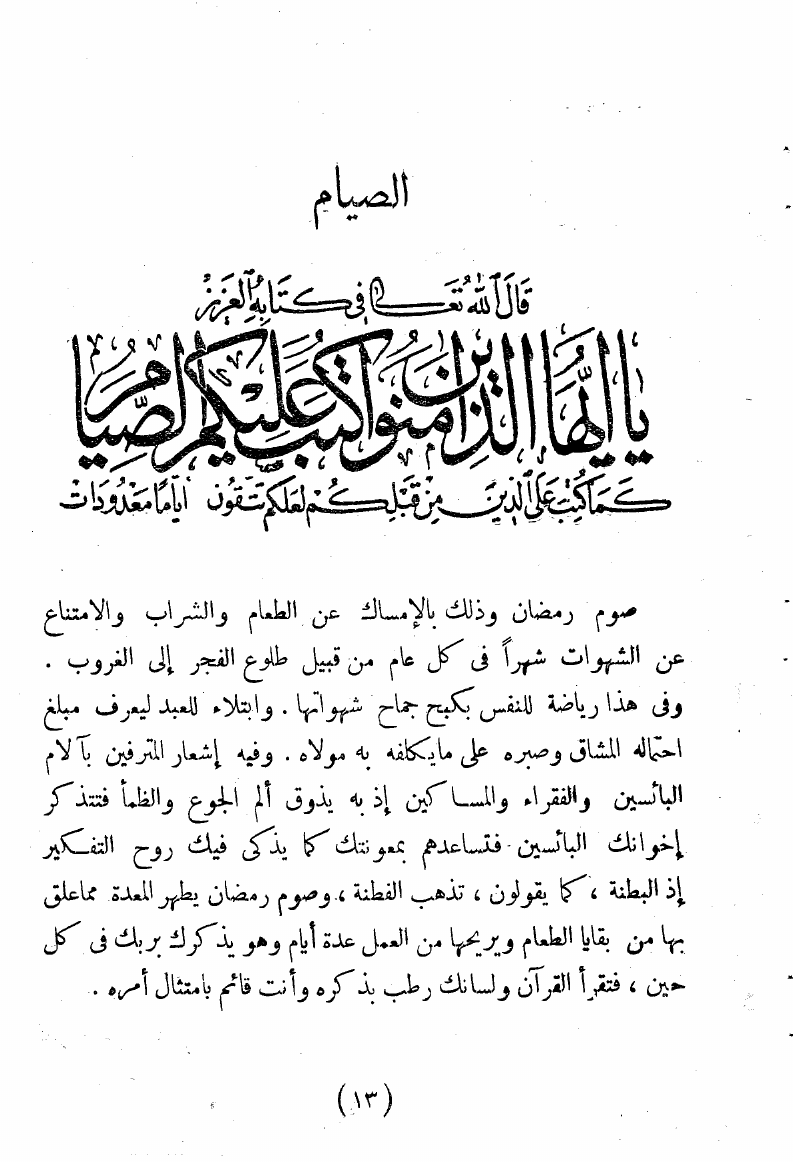 الصيام
قَالَ اللهُ تَعَالَى فِي كِتَابِهِ الْعَزِيزِ
يَا أَيُّهَا الَّذِينَ آمَنُوا كُتِبَ عَلَيْكُمُ الصِّيَامُ
كَمَا كُتِبَ عَلَى الَّذِينَ مِنْ قَبْلِكُمْ لَعَلَّكُمْ تَتَّقُونَ أَيَّامًا مَعْدُودَاتٍ
صوم رمضان وذلك بالإمساك عن الطعام والشراب والامتناع
عن الشهوات شهراً فى كل عام من قبيل طلوع الفجر إلى الغروب .
وفى هذا رياضة للنفس بكبح جماح شهواتها . وابتلاء للعبد ليعرف مبلغ
احتماله المشاق وصبره على مايكلفه به مولاه . وفيه إشعار المترفين بآلام
البائسين والفقراء والمساكين إذ به يذوق ألم الجوع والظمأ فتتذكر
إخوانك البائسين فتساعدهم بمعونتك كما يذكى فيك روح التفكير
إذ البطنة ، كما يقولون ، تذهب الفطنة ، وصوم رمضان يطهر المعدة مماعلق
بها من بقايا الطعام ويريحها من العمل عدة أيام وهو يذكرك بربك فى كل
حين ، فتقرأ القرآن ولسانك رطب بذكره وأنت قائم بامتثال أمره .
(١٣)